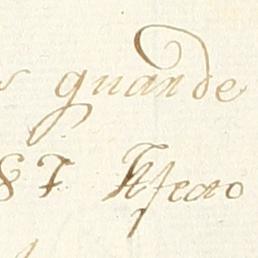 guarde
87 Afecto